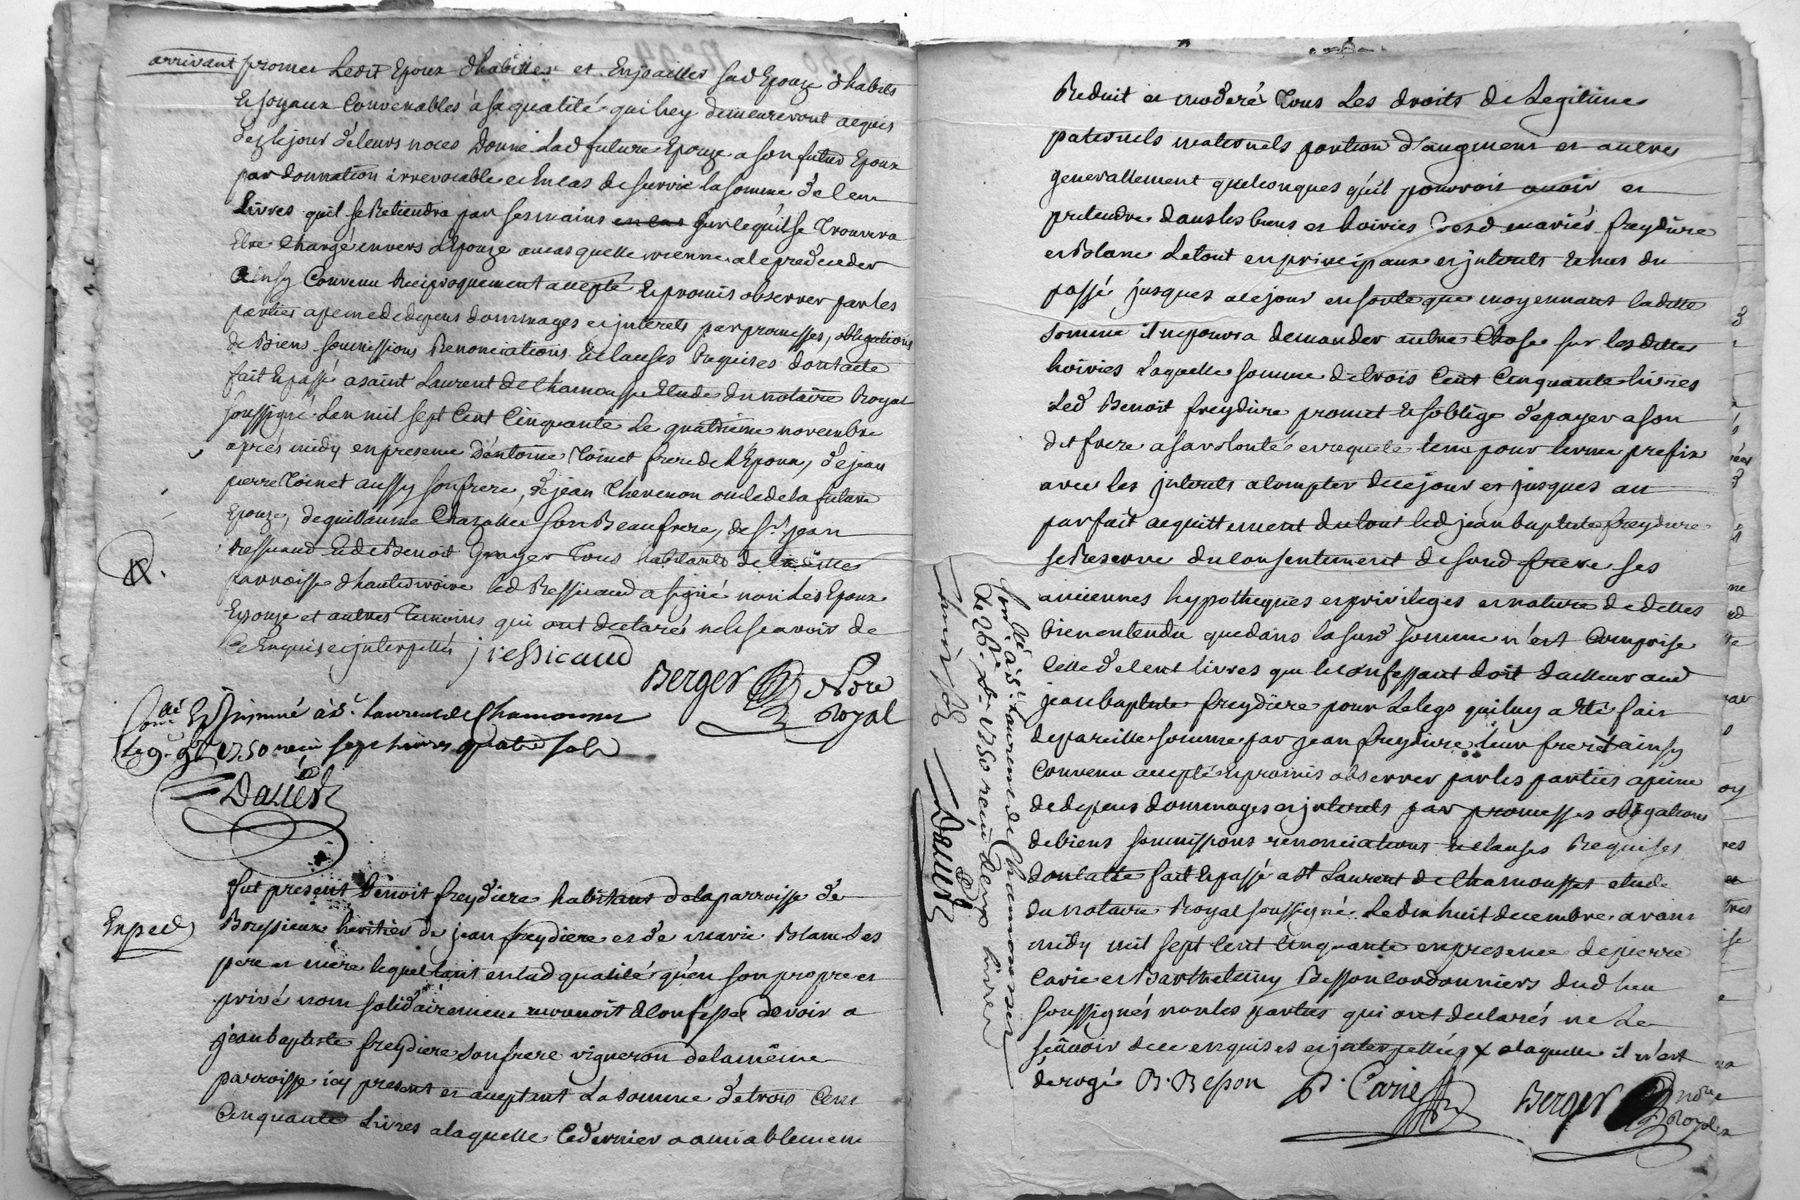 arrivant promet Ledit Epoux d'habiller et Enjoailler sad Epouze d'habits
et joyaux Convenables à sa qualité qui luy demeureront acquis
dez le jour de leurs noces Donne Lad future Epouze a son futur Epoux
par donnation irrevocable et En cas de survie la somme de Cent
Livres qu'il se Retiendra par ses mains sur le qu'il se Trouvera
Etre Chargé envers L'Epouze au cas quelle vienne a le predeceder
Ainsy Convenu Reciproquement accepté et promis observer par les
parties a peine de depens dommages et interets par promesses, obligations
de Biens soumissions Renonciations et clauses Requises dont acte
fait et passé a saint Laurent de Chamousset Etude du notaire Royal
soussigné. Lan mil sept Cent Cinquante Le quatrieme novembre
apres midy en presence D'antoine Coinet frere de L'Epoux, de jean
pierre Coinet aussy son frere, de jean Chevenon oncle de la future
Epouze, de guillaume Chazallet son Beaufrere, de Sr. jean
Ressicaud et de Benoit Granger Tous habitants de
parroisse d'hauterivoire led Ressicaud a signé non Les Epoux
Epouze et autres Temoins qui ont declarés ne le scavoir de
ce Enquis et interpellés j ressicaud
Berger Nore
Royal
Conllé et Insinué à St. Laurent de Chamousset
Le 9e. 9bre 1750 reçu sept livres quatre sols
Dauer
Exped
fut present Benoit freydiere habitant de la parroisse de
Boussieux heritier de jean freydiere et de marie Blanc ses
pere et mere lequel tant en lad qualité qu'en son propre et
privé nom solidairement reconnoit et Confesse devoir a
jean baptiste freydiere son frere vigneron de la même
parroisse icy present et acceptant La somme de trois Cent
Cinquante Livres a laquelle Ce dernier a amiablement
Reduit et moderé Tous Les droits de Legitime
paternels maternels portion d'augment et autres
generallement quelconques qu'il pourroit avoir et
pretendre dans les biens et hoiries desd mariés freydiere
et Blanc Le tout en principaux et interets Echus du
passé jusques a ce jour en sorte que moyennant laditte
somme il ne pourra demander autre Chose sur lesdittes
hoiries Laquelle somme de trois Cent Cinquante Livres
Led Benoit freydiere promet et s'oblige de payer a son
dit frere a sa volonté et requete tenu pour terme prefix
avec les interets a compter de ce jour et jusques au
parfait acquittement du tout led jean baptiste freydiere
se Reserve du Consentement de sond frere ses
anciennes hypotheques et privileges et nature de dettes
bien entendu que dans la susd somme n'est Comprise
Celle de Cent livres que le Confessant doit d'ailleurs aud
jean baptiste freydiere pour Le legs qui luy a été fait
de pareille somme par jean freydiere leur frere x ainsy
Convenu accepté et promis observer par les parties a peine
de depens dommages et interets par promesses obligations
de biens soumissions renonciations et clauses Requises
dont acte fait et passé a St Laurent de Chamousset etude
du notaire Royal soussigné Le dix huit decembre avant
midy mil sept Cent Cinquante en presence de pierre
Carie et Barthelemy Besson cordonniers dud lieu
soussignés non les parties qui ont declarés ne Le
scavoir de ce enquises et interpellées x a laquelle il n'est
derogé B. Besson P. Carie Berger Nore
Royal
Conllé à St. Laurent de Chamousset
Le 26e. Xbre 1750 reçu deux livres
Dauer